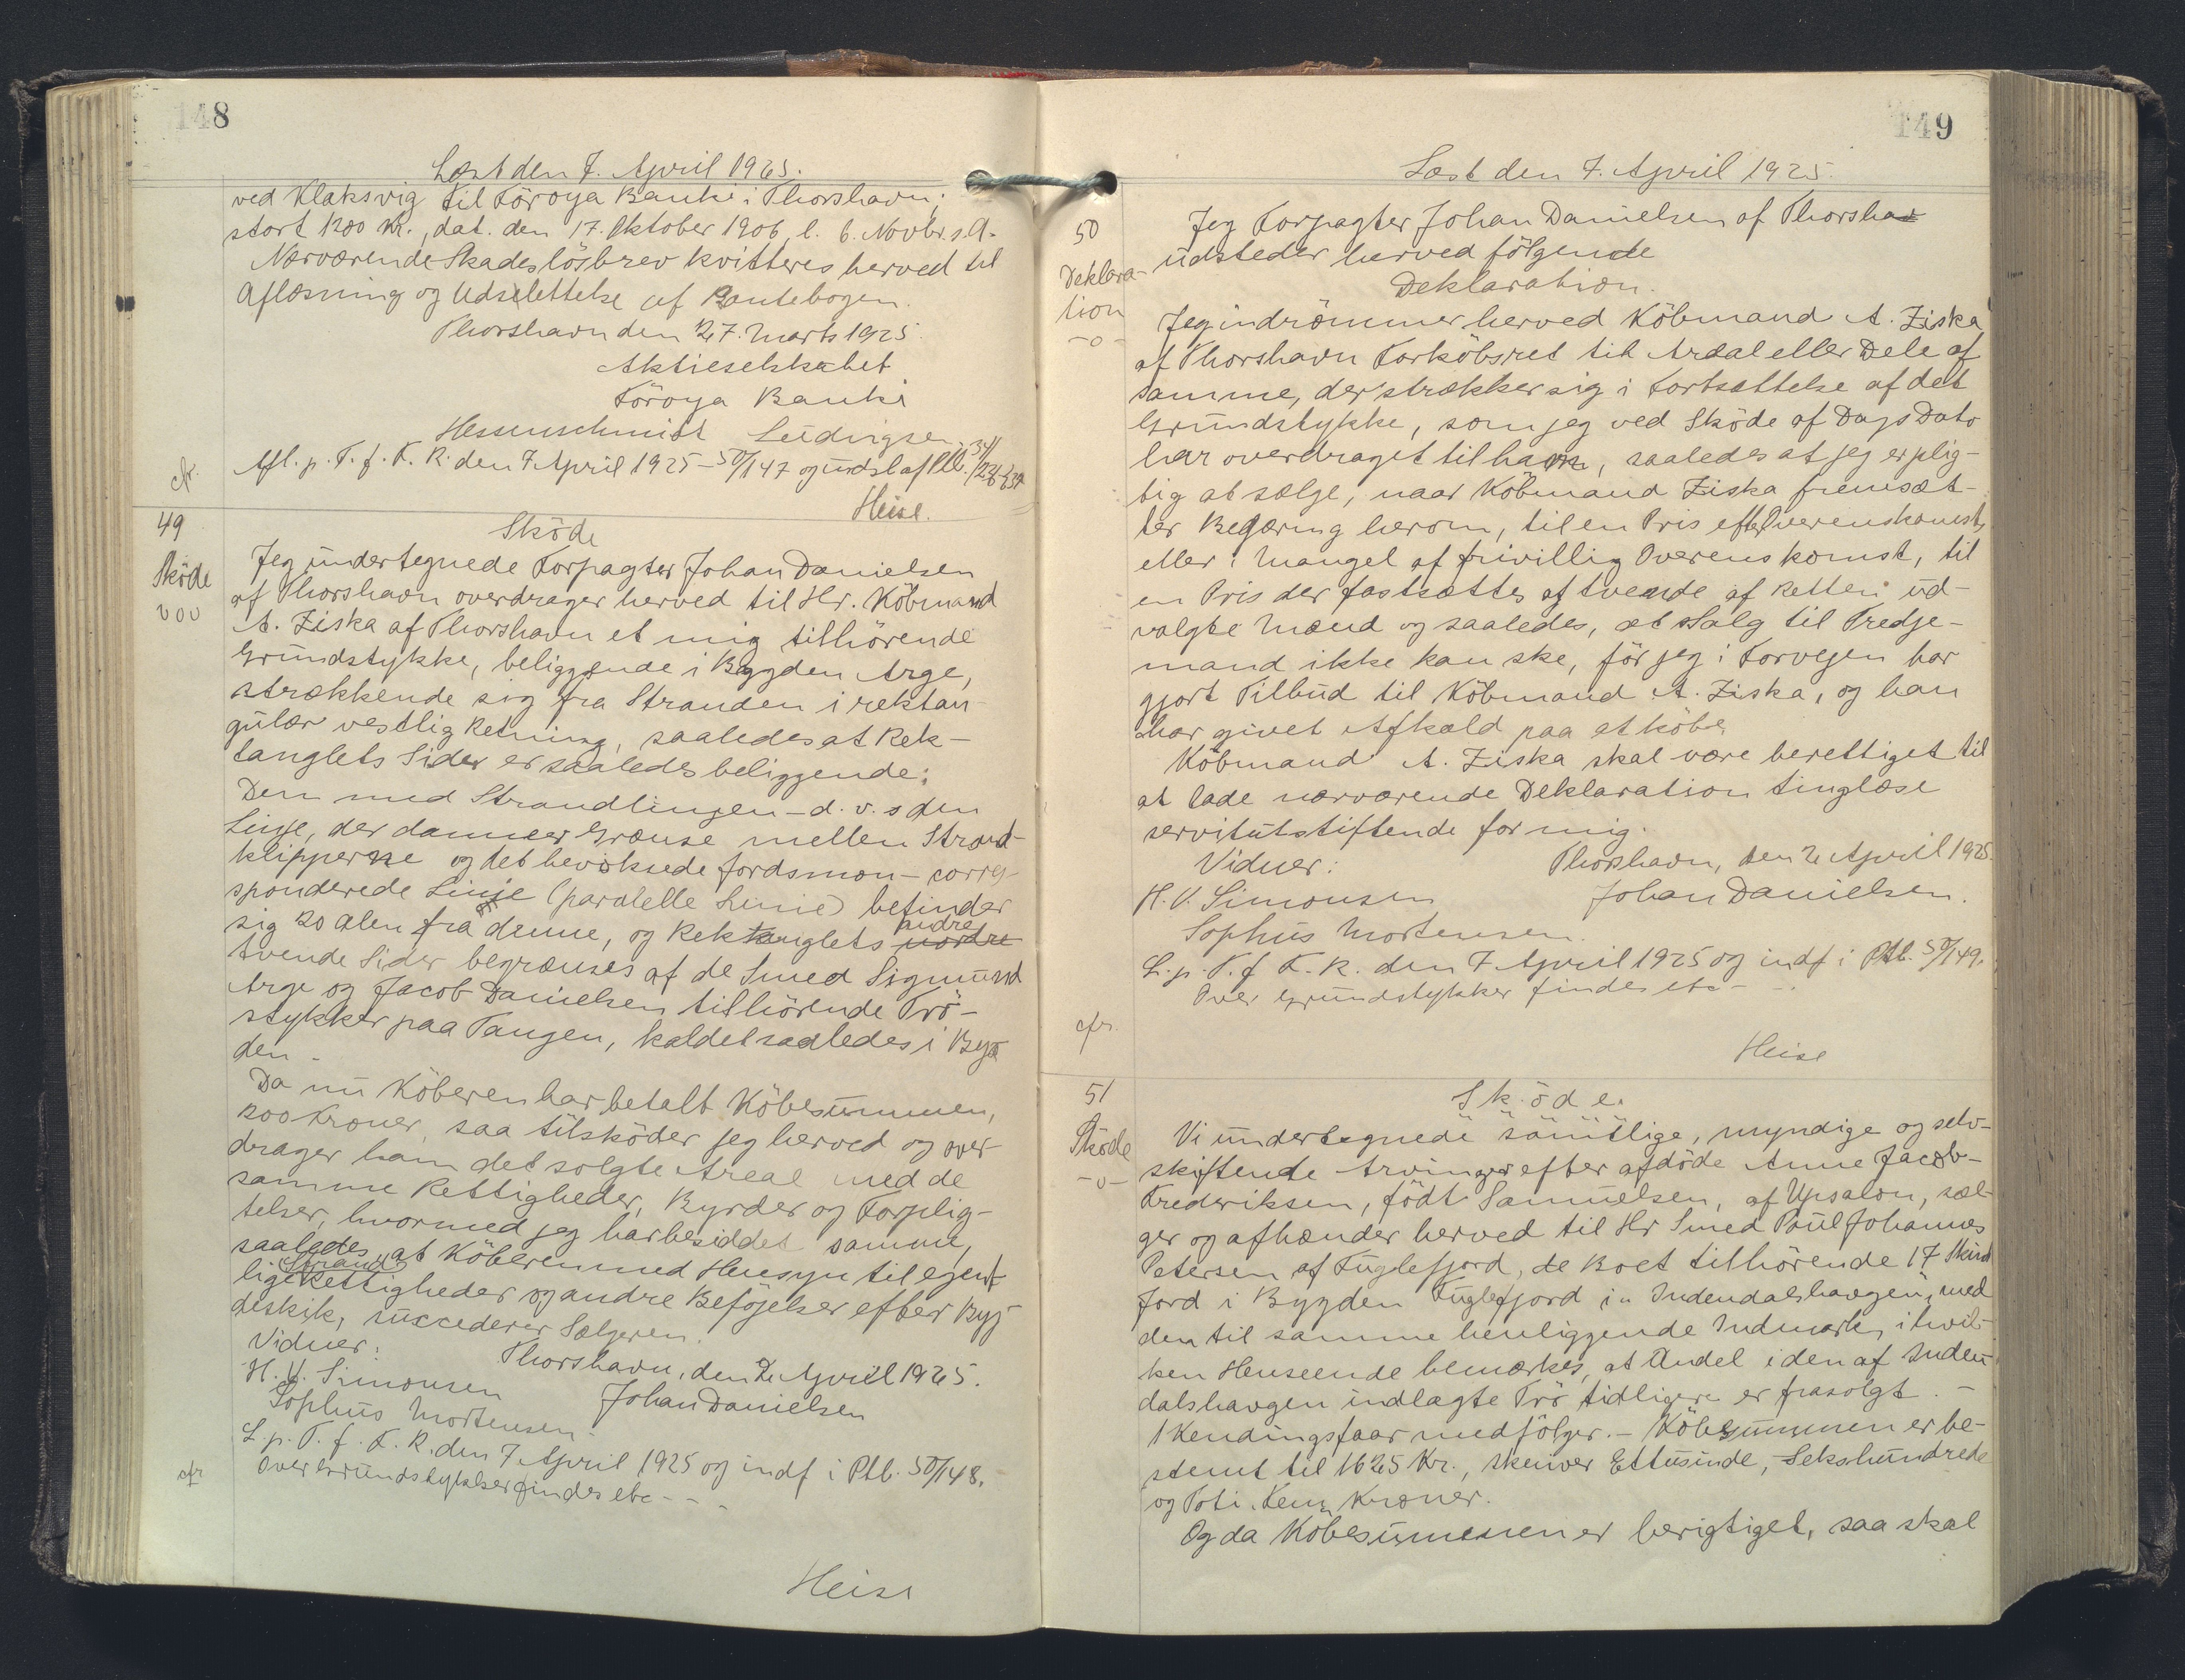 148
Læst den 7. April 1925.
ved Klaksvig til Föroya Banki i Thorshavn;
stort 1200 Kr., dat. den 17. Oktober 1906, l. 6. Novbr. s.A.
Nærværende Skadeslösbrev kvitteres herved til
Aflæsning og Udslettelse af Pantebogen.
Thorshavn den 27. Marts 1925.
Aktieselskabet
Föroya Banki
Hessenschmidt Ludvigsen.
cfr.
Afl. p. T. f. F. R. den 7 April 1925 – 50/147 og udsl af Ptb.
Heise.
49
Sköde
Sköde
Jeg undertegnede Forpagter Johan Danielsen
af Thorshavn overdrager herved til Hr. Köbmand
A. Ziska af Thorshavn et mig tilhörende
Grundstykke, beliggende i Bygden Arge,
strækkende sig fra Stranden i rektan-
gulær vestlig Retning, saaledes at Rek-
tanglets Sider er saaledes beliggende:
Den med Strandlinjen – d. v. s den
Linje, der danner Grænse mellen Strand-
klipperne og det bevoksede Jordsmon – corre-
sponderede Linje (paralelle Linie) befinder
sig 20 Alen fra denne, og Rektanglets nordre andre
tvende Sider begrænses af de Smed Sigmund
Arge og Jacob Danielsen tilhörende Trö-
stykker paa Tangen, kaldet saaledes i Byg
den –
Da nu Köberen har betalt Köbesummen,
200 Kroner, saa tilsköder jeg herved og over-
drager ham det solgte Areal med de
samme Rettigheder, Byrder og Forplig-
telser, hvormed jeg har besiddet samme,
saaledes, at Köberen med Hensyn til egent-
lige Strand Rettigheder og andre Beföjelser efter Byg
deskik, succederer Sælgeren.
Vidner:
Thorshavn, den 2 April 1925.
H. V. Simonsen
Johan Danielsen
Sophus Mortensen.
L. p. T. f. F. R. den 7 April 1925 og indf i Ptb. 50/148.
cfr
Over Grundstykker findes etc – – –
Heise
149
Læst den 7. April 1925.
50
Deklara-
tion
-o-
Jeg Forpagter Johan Danielsen af Thorsha
udsteder herved fölgende
Deklaration.
Jeg indrömmer herved Köbmand A. Ziska
af Thorshavn Forköbsret til Areal eller Dele af
samme, der strækker sig i Fortsættelse af det
Grundstykke, som jeg ved Sköde af Dags Dato
har overdraget til ham, saaledes at jeg er plig-
tig at sælge, naar Köbmand Ziska fremsæt-
ter Begæring herom, til en Pris efter Overenskomst,
eller i Mangel af frivillig Overenskomst, til
en Pris der fastsættes af tvende af Retten ud-
valgte Mænd og saaledes, at Salg til Tredje-
mand ikke kan ske, för jeg i Forvejen har
gjort Tilbud til Köbmand A. Ziska, og han
har givet Afkald paa at köbe.
Köbmand A. Ziska skal være berettiget til
at lade nærværende Deklaration tinglæse
servitutstiftende for mig.
Vidner:
Thorshavn, den 2 April 1925.
H. V. Simonsen
Johan Danielsen.
Sophus Mortensen.
L. p. T. f F. R. den 7 April 1925 og indf i Ptb. 50/149.
Over Grundstykker findes etc – –
cfr.
Heise
51
Sköde
-o-
Sköde.
Vi undertegnede samtlige, myndige og selv-
skiftende Arvinger efter afdöde Anne Jacob-
Frederiksen, födt Samuelsen, af Upsalon, sæl-
ger og afhænder herved til Hr Smed Poul Johannes
Petersen af Fuglefjord, de Boet tilhörende 17 Skind
Jord i Bygden Fuglefjord i „Indendalshavgen“, med
den til samme henliggende Indmark, i hvil-
ken Henseende bemærkes, at Andel i den af Inden
dalshavgen indlagte Trö tidligere er frasolgt. –
1 Kendingsfaar medfölger. – Köbesummen er be-
stemt til 1625 Kr., skriver Ettusinde, Sekshundrede
og Toti. Fem Kroner.
Og da Köbesummen er berigtiget, saa skal